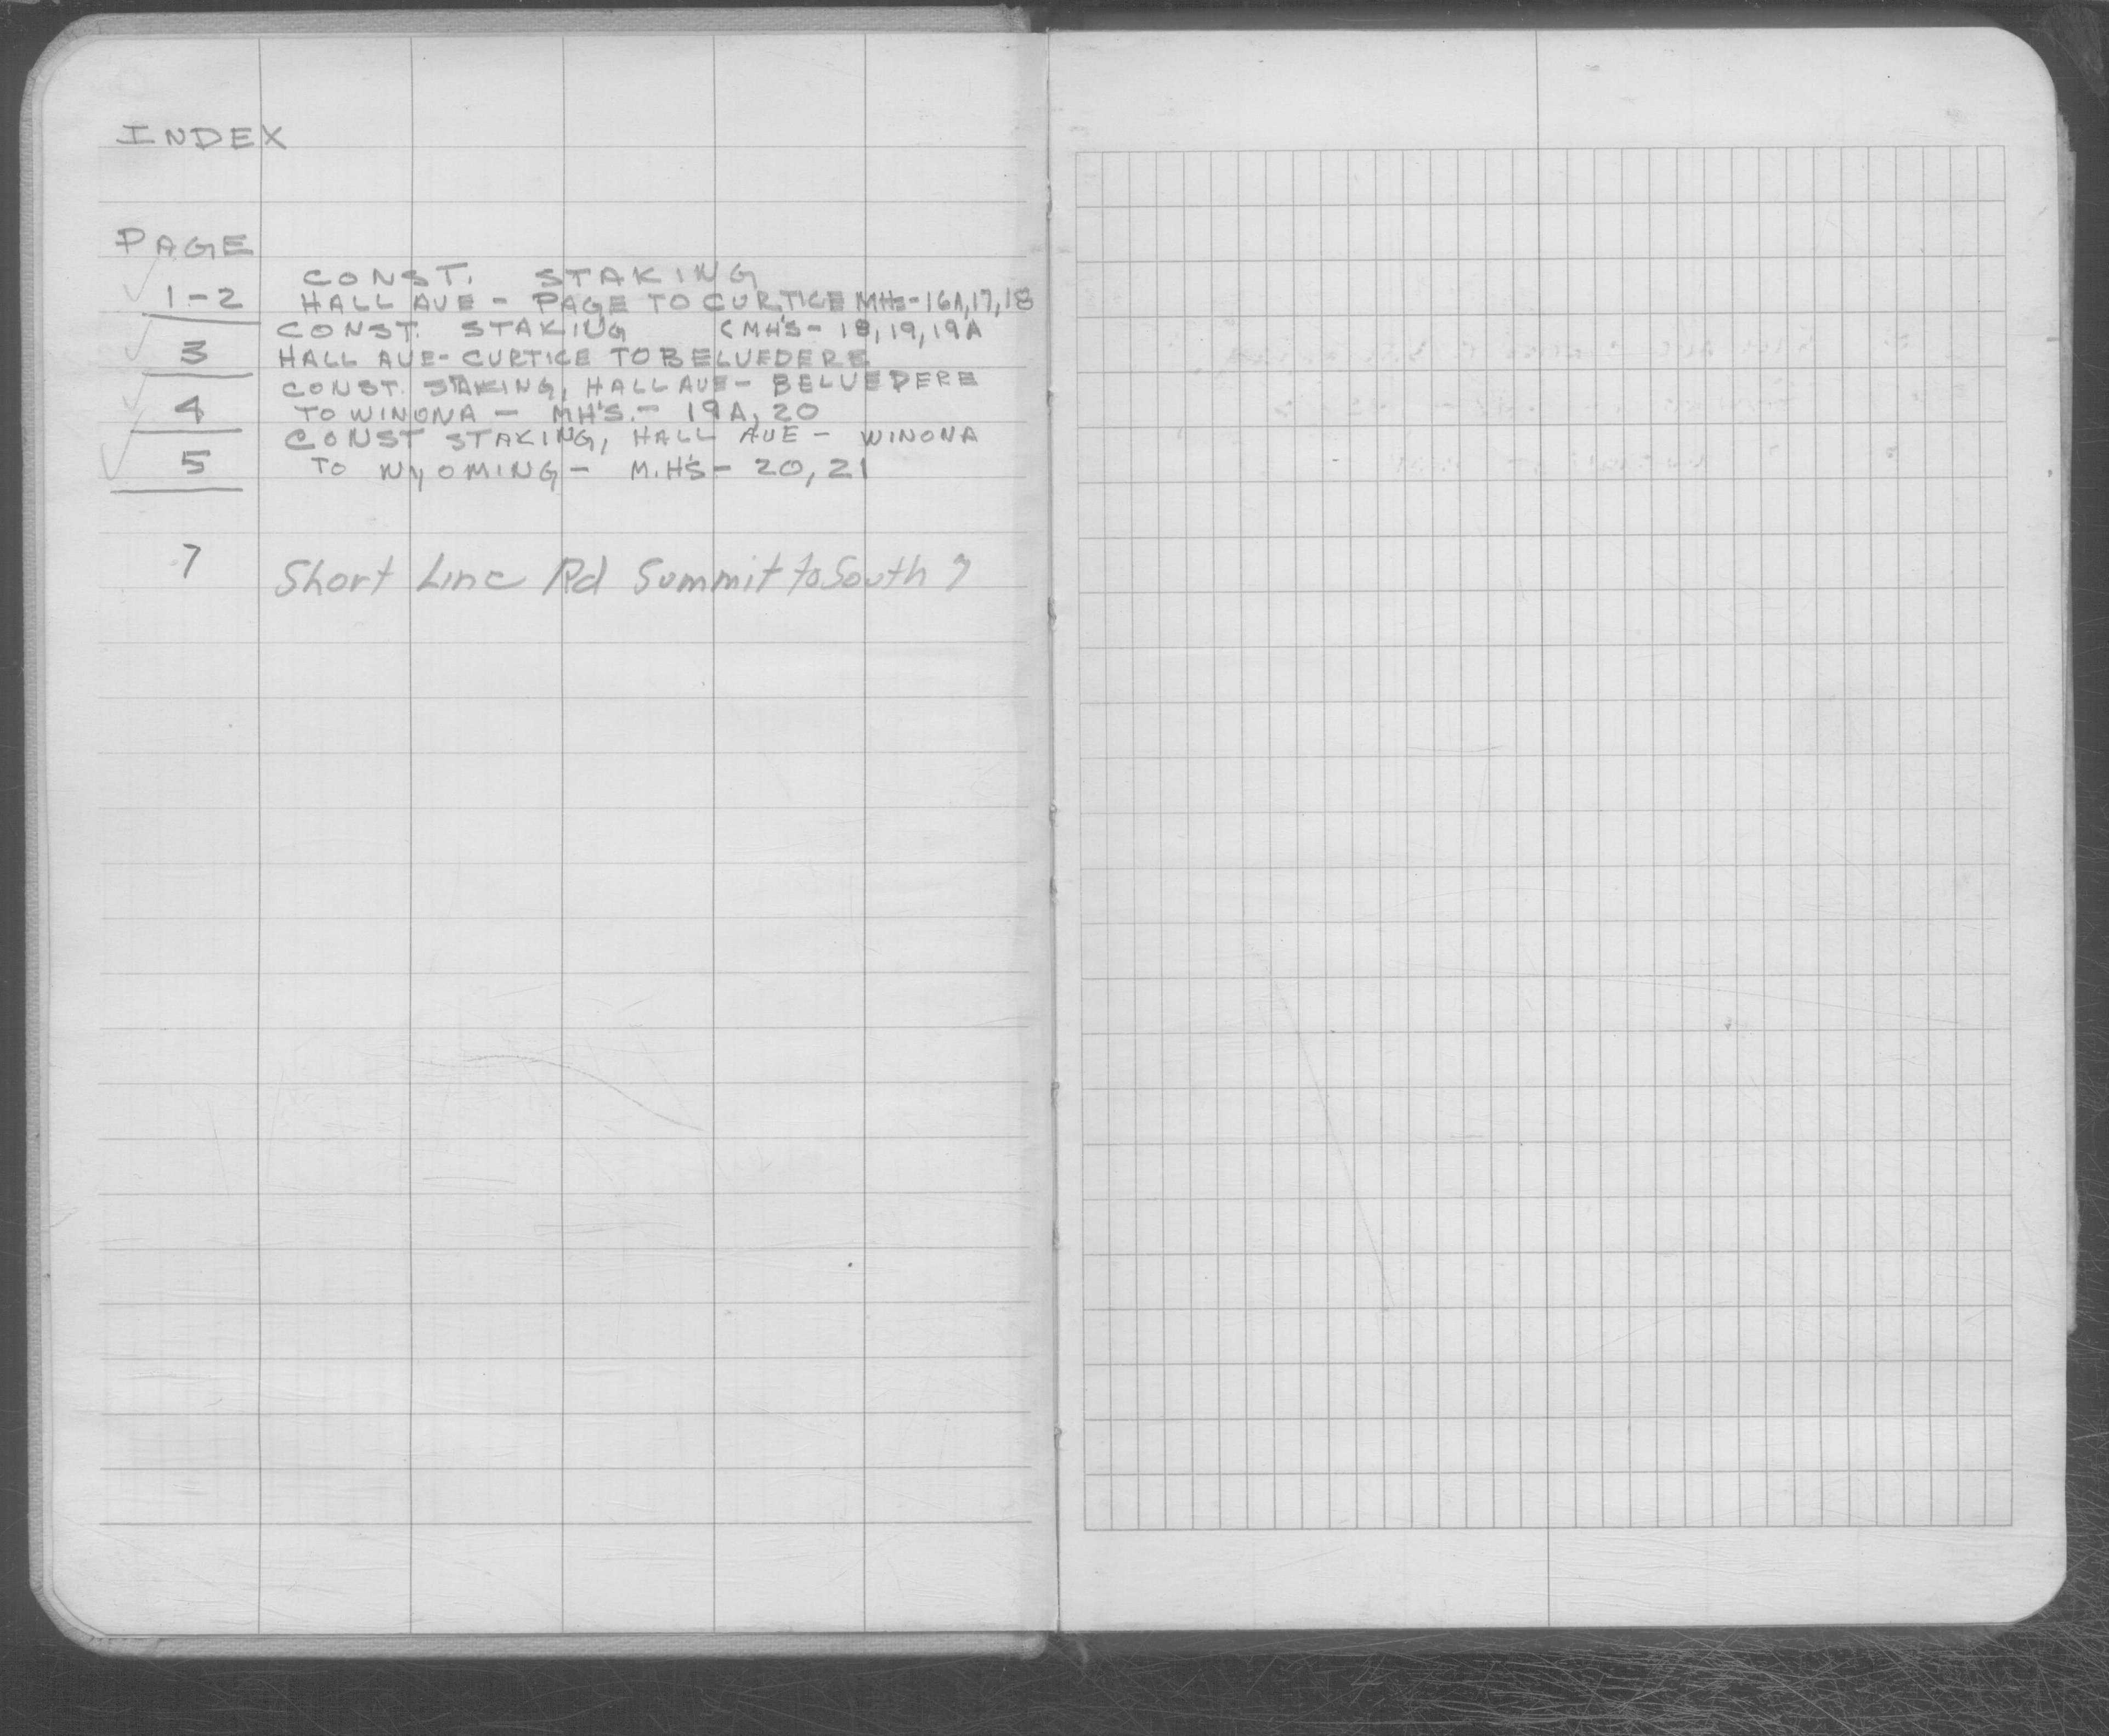 INDEX
PAGE
CONST. STAKING
1-2 HALL AVE - PAGE TO CURTICE MH'S-16A,17,18
CONST. STAKING (MH'S- 18,19,19A
3 HALL AVE- CURTICE TO BELVEDERE
CONST. STAKING, HALL AVE- BELVEDERE
4 TO WINONA - MH'S.- 19A, 20
CONST STAKING, HALL AVE - WINONA
5 TO WYOMING - M.H'S- 20, 21
7 Short Line Rd Summit to South 7